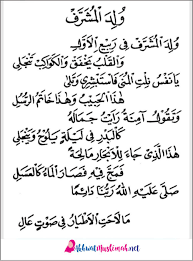 وُلِدَ الْمُشَرَّفْ
وُلِدَ الْمُشَرَّفْ فِي رَبِيْعِ الْأَوَّلِ
وَالْقَلْبُ يَخْفَقُ وَالْكَوَاكِبُ تَنْجَلِي
يَا نَفْسُ نِلْتِ الْمُنَى فَاسْتَبْشِرِي وَسَلِي
هٰذَا الْحَبِيْبُ وَهٰذَا خَاتَمُ الرُّسُلِ
وَتَقُوْلُ آمِنَةُ رَأَيْتُ جَمَالَهُ
كَالْبَدْرِ فِي لَيْلَةٍ يَلُوْحُ وَيَنْجَلِي
هٰذَا الَّذِي جَاءَ لِلْأَبْحَارِ مَالِحَةً
فَمَجَّ فِيْهِ فَصَارَ الْمَاءُ كَالْعَسَلِ
صَلَّى عَلَيْهِ اللهُ رَبُّنَا دَائِمًا
مَا لَاحَتِ الْأَطْيَارُ فِي صَوْتٍ عَالِ
AkhwatMuslimah.net